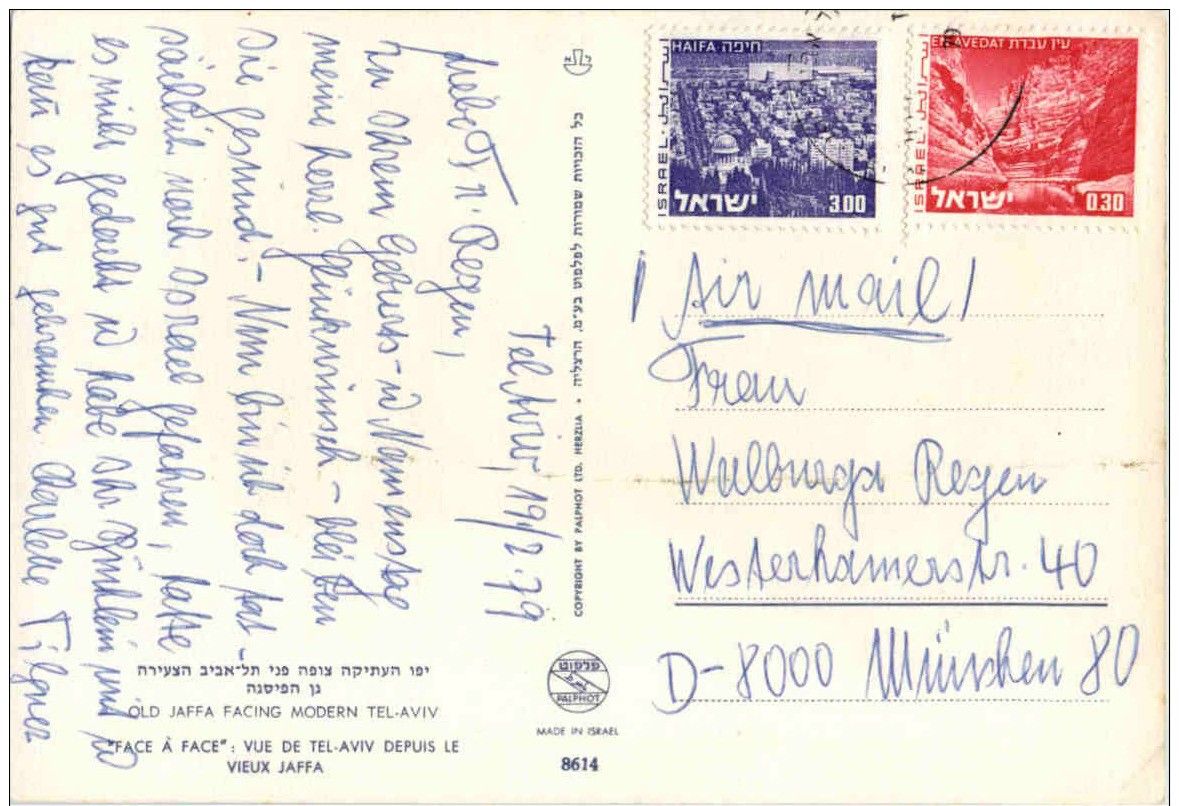 Tel Aviv, 19/2.79
Liebe Fr. Regen,
zu Ihrem Geburts- u Namenstag
meine herzl. Glückwünsche – bleiben
Sie gesund. – Nun bin ich doch tat
sächlich nach Israel gefahren, hatte
es nicht gedacht u habe Ihr mit u
kann es gut gebrauchen. Tilgner
כל הזכויות שמורות לפלפוט בע״מ. הרצליה •
COPYRIGHT BY PALPHOT LTD. HERZLIA •
יפו העתיקה צופה פני תל־אביב הצעירה
גן הפיסגה
OLD JAFFA FACING MODERN TEL-AVIV
"FACE À FACE": VUE DE TEL-AVIV DEPUIS LE
VIEUX JAFFA
פלפוט
PALPHOT
MADE IN ISRAEL
8614
HAIFA חיפה
ISRAEL اسرائيل
ישראל 3.00
EN AVEDAT עין עבדת
ISRAEL اسرائيل
ישראל 0.30
! Air mail !
Frau
Walburga Regen
Westerhamerstr. 40
D-8000 München 80